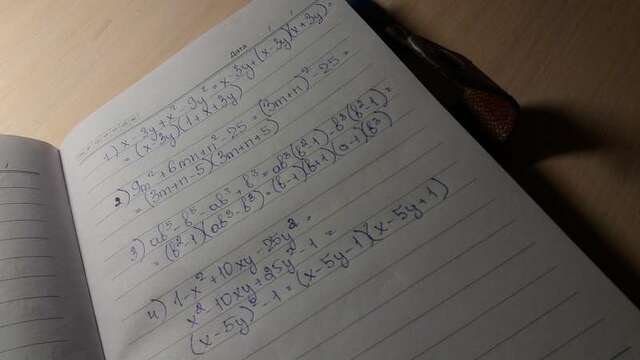 Дата
1) x - 3y + x² - 9y² = x - 3y + (x - 3y)(x + 3y) =
= (x - 3y)(1 + x + 3y)
2) 9m² + 6mn + n² - 25 = (3m + n)² - 25 =
= (3m + n - 5)(3m + n + 5)
3) ab⁵ - b⁵ - ab³ + b³ = ab³(b² - 1) - b³(b² - 1) =
= (b² - 1)(ab³ - b³) = (b - 1)(b + 1)(a - 1)(b³)
4) 1 - x² + 10xy - 25y² =
x² - 10xy + 25y² - 1 =
(x - 5y)² - 1 = (x - 5y - 1)(x - 5y + 1)